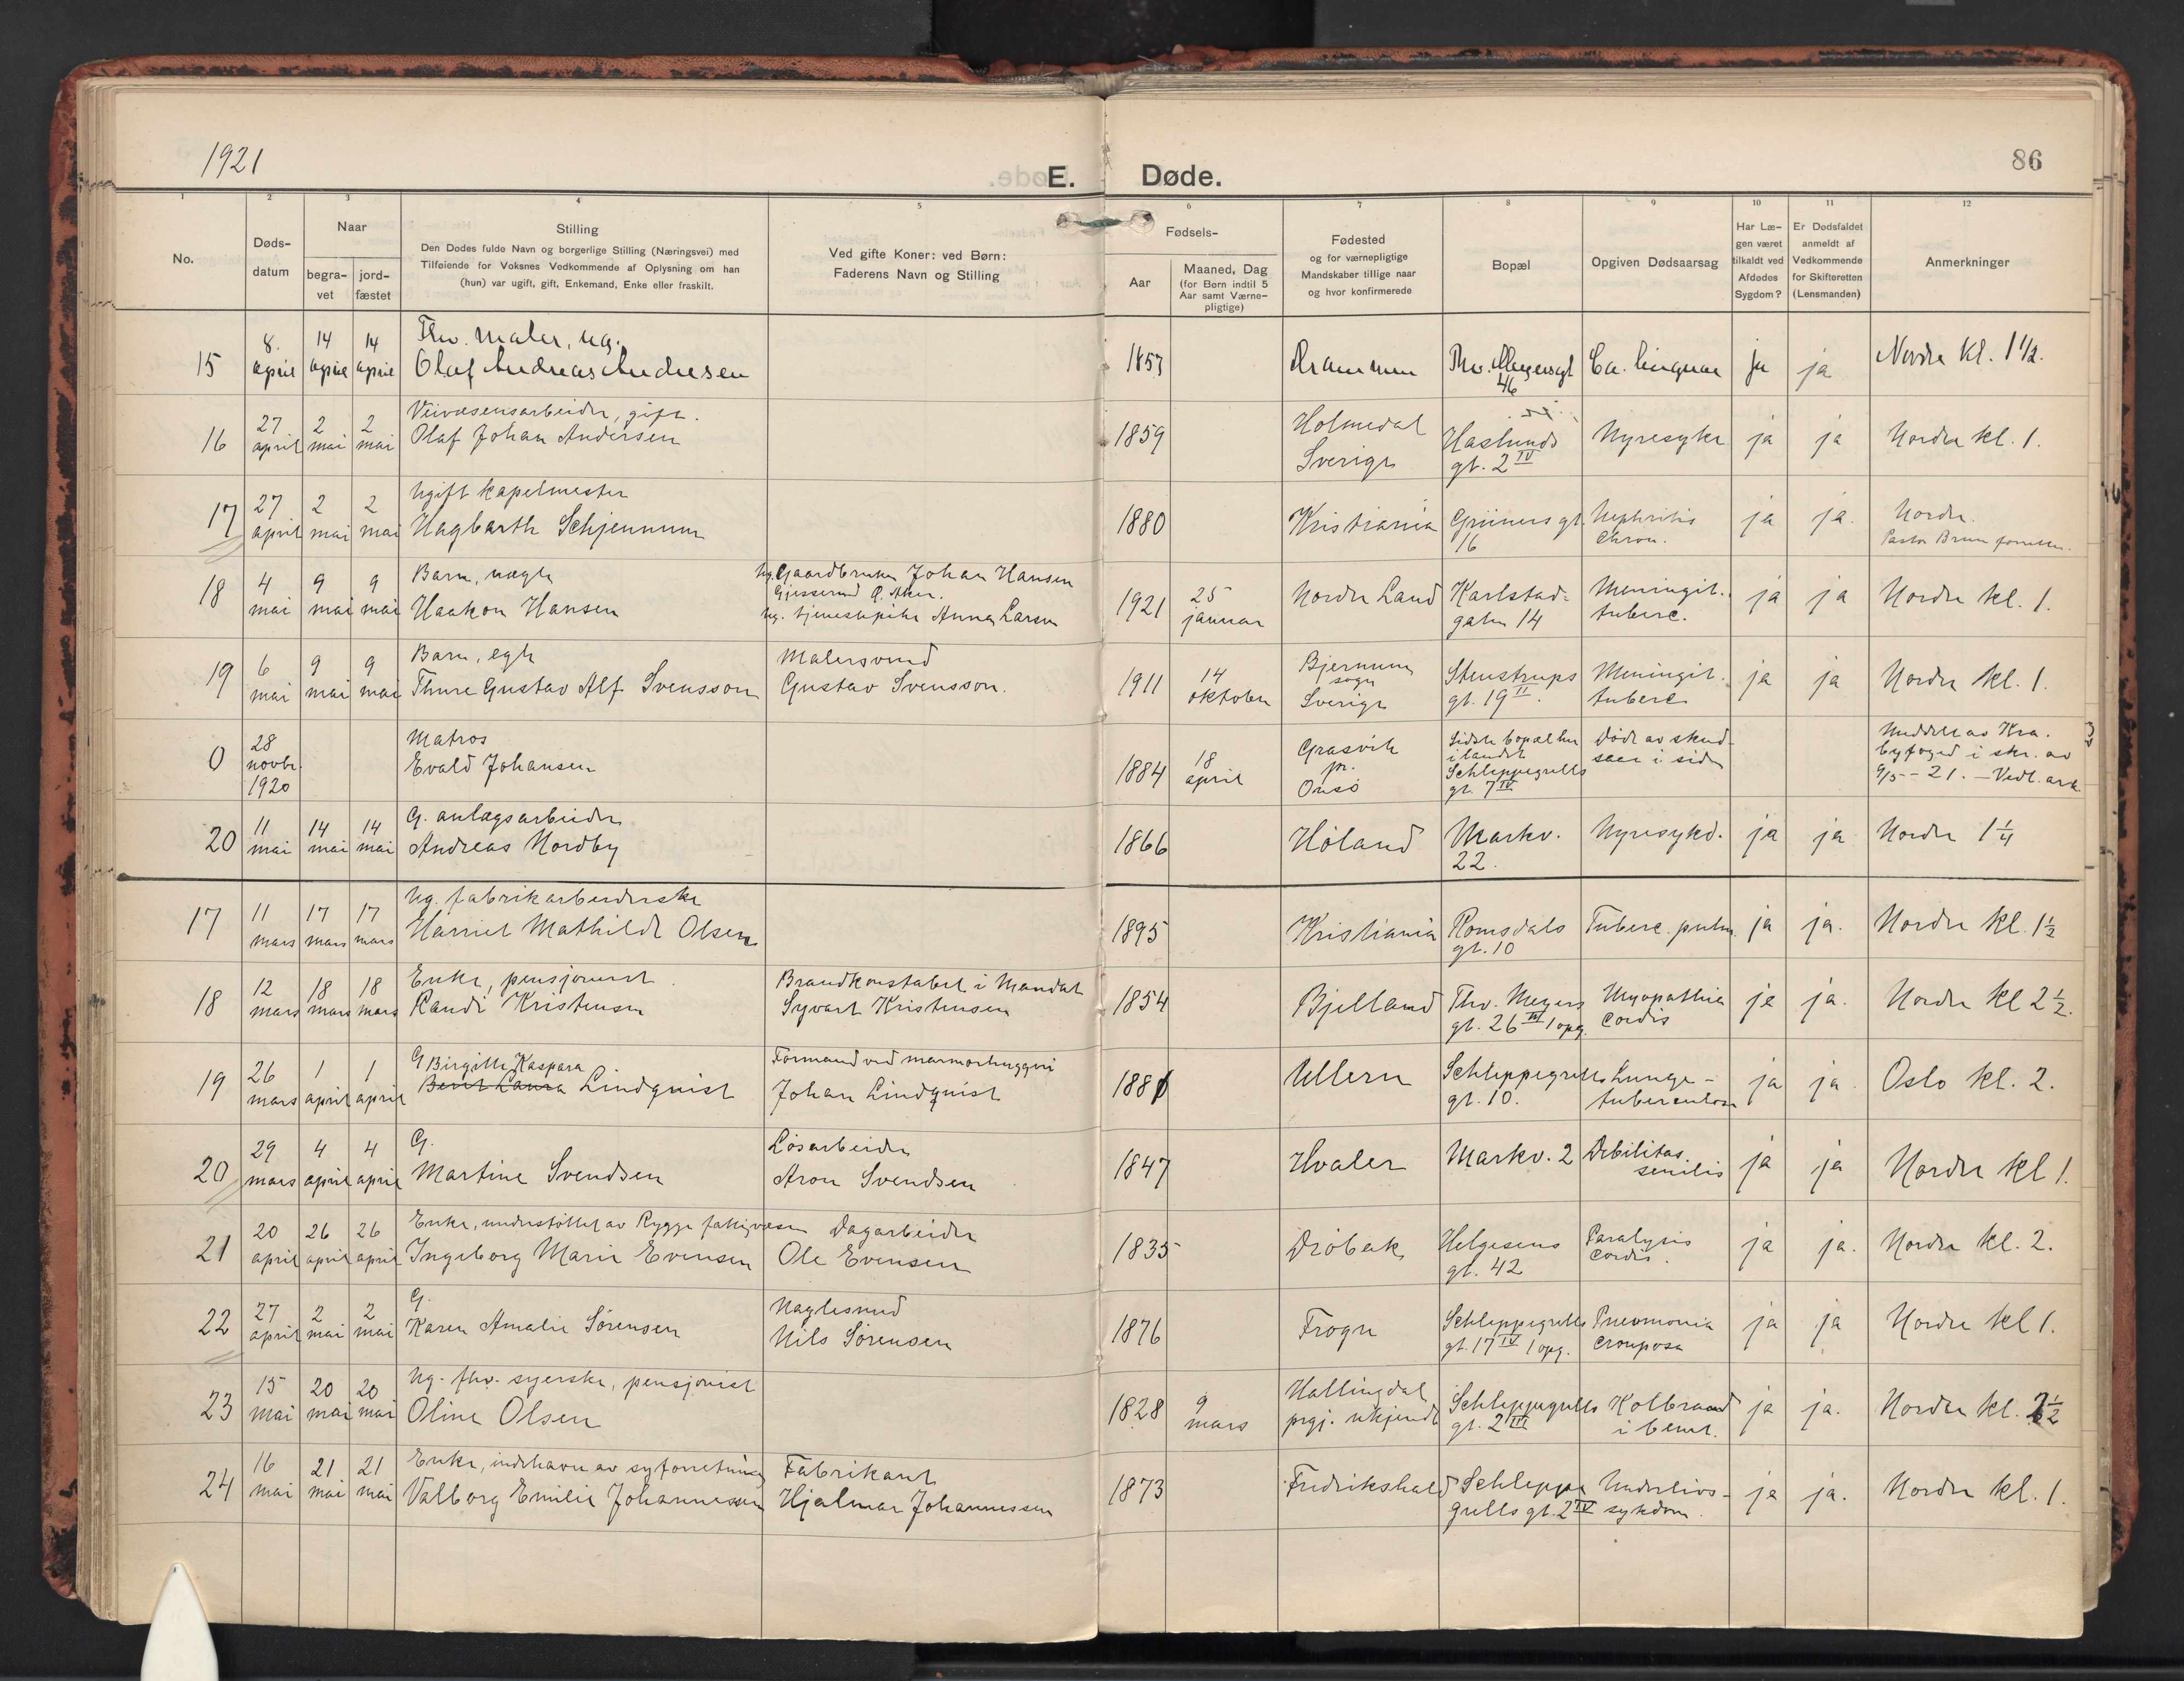 1921
E. Døde.
86
1 2 3 4 5 6 7 8 9 10 11 12
No.
Døds-
datum
Naar
begra-
vet
jord-
fæstet
Stilling
Den Dødes fulde Navn og borgerlige Stilling (Næringsvei) med
Tilføiende for Voksnes Vedkommende af Oplysning om han
(hun) var ugift, gift, Enkemand, Enke eller fraskilt.
Ved gifte Koner: ved Børn:
Faderens Navn og Stilling
Fødsels-
Aar
Maaned, Dag
(for Børn indtil 5
Aar samt Værne-
pligtige)
Fødested
og for værnepligtige
Mandskaber tillige naar
og hvor konfirmerede
Bopæl
Opgiven Dødsaarsag
Har Læ-
gen været
tilkaldt ved
Afdødes
Sygdom?
Er Dødsfaldet
anmeldt af
Vedkommende
for Skifteretten
(Lensmanden)
Anmerkninger
15 8. april 14 april 14 april
Fhv. maler, ug.
Olaf Andreas Andresen
1857 Drammen Thv. Meyersgt 46 Ca. linguae ja ja Nordre kl. 1 1/2.
16 27 april 2 mai 2 mai
Veivæsensarbeider, gift.
Olaf Johan Andersen
1859 Holmedal Sverige Haslunds gt. 2 IV Nyresyke ja ja Nordre kl. 1.
17 27 april 2 mai 2 mai
Ugift kapelmester
Hagbarth Schjennum
1880 Kristiania Grüners gt. 16 Nephritis Chron. ja ja. Nordre.
Pastor Brun
18 4 mai 9 mai 9 mai
Barn, uegte
Haakon Hansen
Ug. Gaardbruker Johan Hansen
Ø. Aker.
ug. tjenestepike Anna Larsen
1921 25 januar Nordre Land Karlstad- gaten 14 Meningit. tuberc. ja ja Nordre kl. 1.
19 6 mai 9 mai 9 mai
Barn, egte
Thure Gustav Alf Svensson
Malersvend
Gustav Svensson.
1911 14 oktober Bjernum sogn Sverige Stenstrups gt. 19 II. Meningit. tuberc. ja ja Nordre kl. 1.
0 28 novbr. 1920
Matros
Evald Johansen
1884 18 april Græsvik pr. Onsø
Sidste bopæl her
i landet
Schleppegrells
gt. 7 IV
Døde av skud-
saar i siden
Meddelt av Kra.
byfoged i skr. av
9/5 - 21. - Vedl. ark.
20 11 mai 14 mai 14 mai
G. anlægsarbeider
Andreas Nordby
1866 Høland Markv. 22. Nyresykd. ja ja Nordre 1 1/4
17 11 mars 17 mars 17 mars
Ug. fabrikarbeiderske
Harriet Mathilde Olsen
1895 Kristiania Romsdals gt. 10 Tuberc. pulm. ja ja. Nordre kl. 1 1/2
18 12 mars 18 mars 18 mars
Enke, pensjonist.
Randi Kristensen
Brandkonstabel i Mandal
Syvart Kristensen
1854 Bjelland Thv. Meyers gt. 26 III 1 opg. Myopathia cordis ja ja. Nordre kl 2 1/2.
19 26 mars 1 april 1 april
G Birgitte Kaspara
Berit Laura Lindquist
Formand ved marmorhuggeri
Johan Lindquist
1881 Ullern Schleppegrells gt. 10. Lunge- tuberculose ja ja. Oslo kl. 2.
20 29 mars 4 april 4 april
G.
Martine Svendsen
Løsarbeider
Aron Svendsen
1847 Hvaler Markv. 2 Debilitas senilis ja ja Nordre kl 1.
21 20 april 26 april 26 april
Enke, understøttet av Rygge fattigvæsen
Ingeborg Marie Evensen
Dagarbeider
Ole Evensen
1835 Drøbak Helgesens gt. 42 Paralysis cordis. ja ja. Nordre kl. 2.
22 27 april 2 mai 2 mai
G.
Karen Amalie Sørensen
Naglesmed
Nils Sørensen
1876 Frogn Schleppegrells gt. 17 IV 1 opg. Pneumonia crouposa ja ja Nordre kl 1.
23 15 mai 20 mai 20 mai
Ug. fhv. syerske, pensjonist
Oline Olsen
1828 9 mars Hallingdal prgj. ukjendt Schleppegrells gt. 2 III Kolbrand i benet. ja ja. Nordre kl. 2 1/2
24 16 mai 21 mai 21 mai
Enke, indehaver av syforretning
Valborg Emilie Johannessen
Fabrikant
Hjalmar Johannessen
1873 Fredrikshald Schleppe grells gt. 2 IV Underlivs- sykdom. ja ja. Nordre kl. 1.